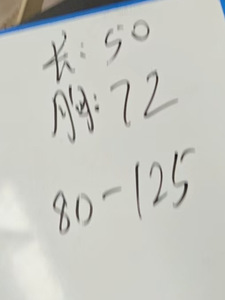 长:50
胸:72
80-125